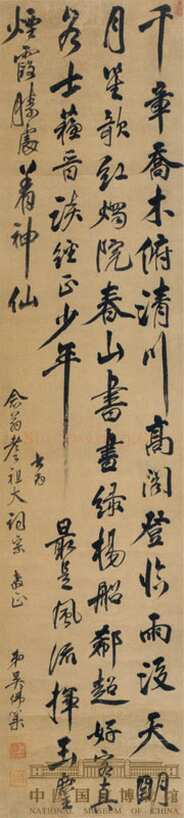 千章喬木俯清川高閣登臨雨後天明
月笙歌紅燭院春山書畫綠楊船郗超好客真
名士蘇晉談經正少年最是風流揮玉麈
煙霞勝處著神仙
書為
念翁老祖大詞宗教正
弟吳偉業
中国国家博物馆
NATIONAL MUSEUM OF CHINA